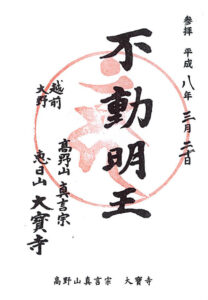 参拝 平成八年三月二十日
不動明王
越前
大野
高野山真言宗
恵日山 大寳寺
高野山真言宗 大寳寺